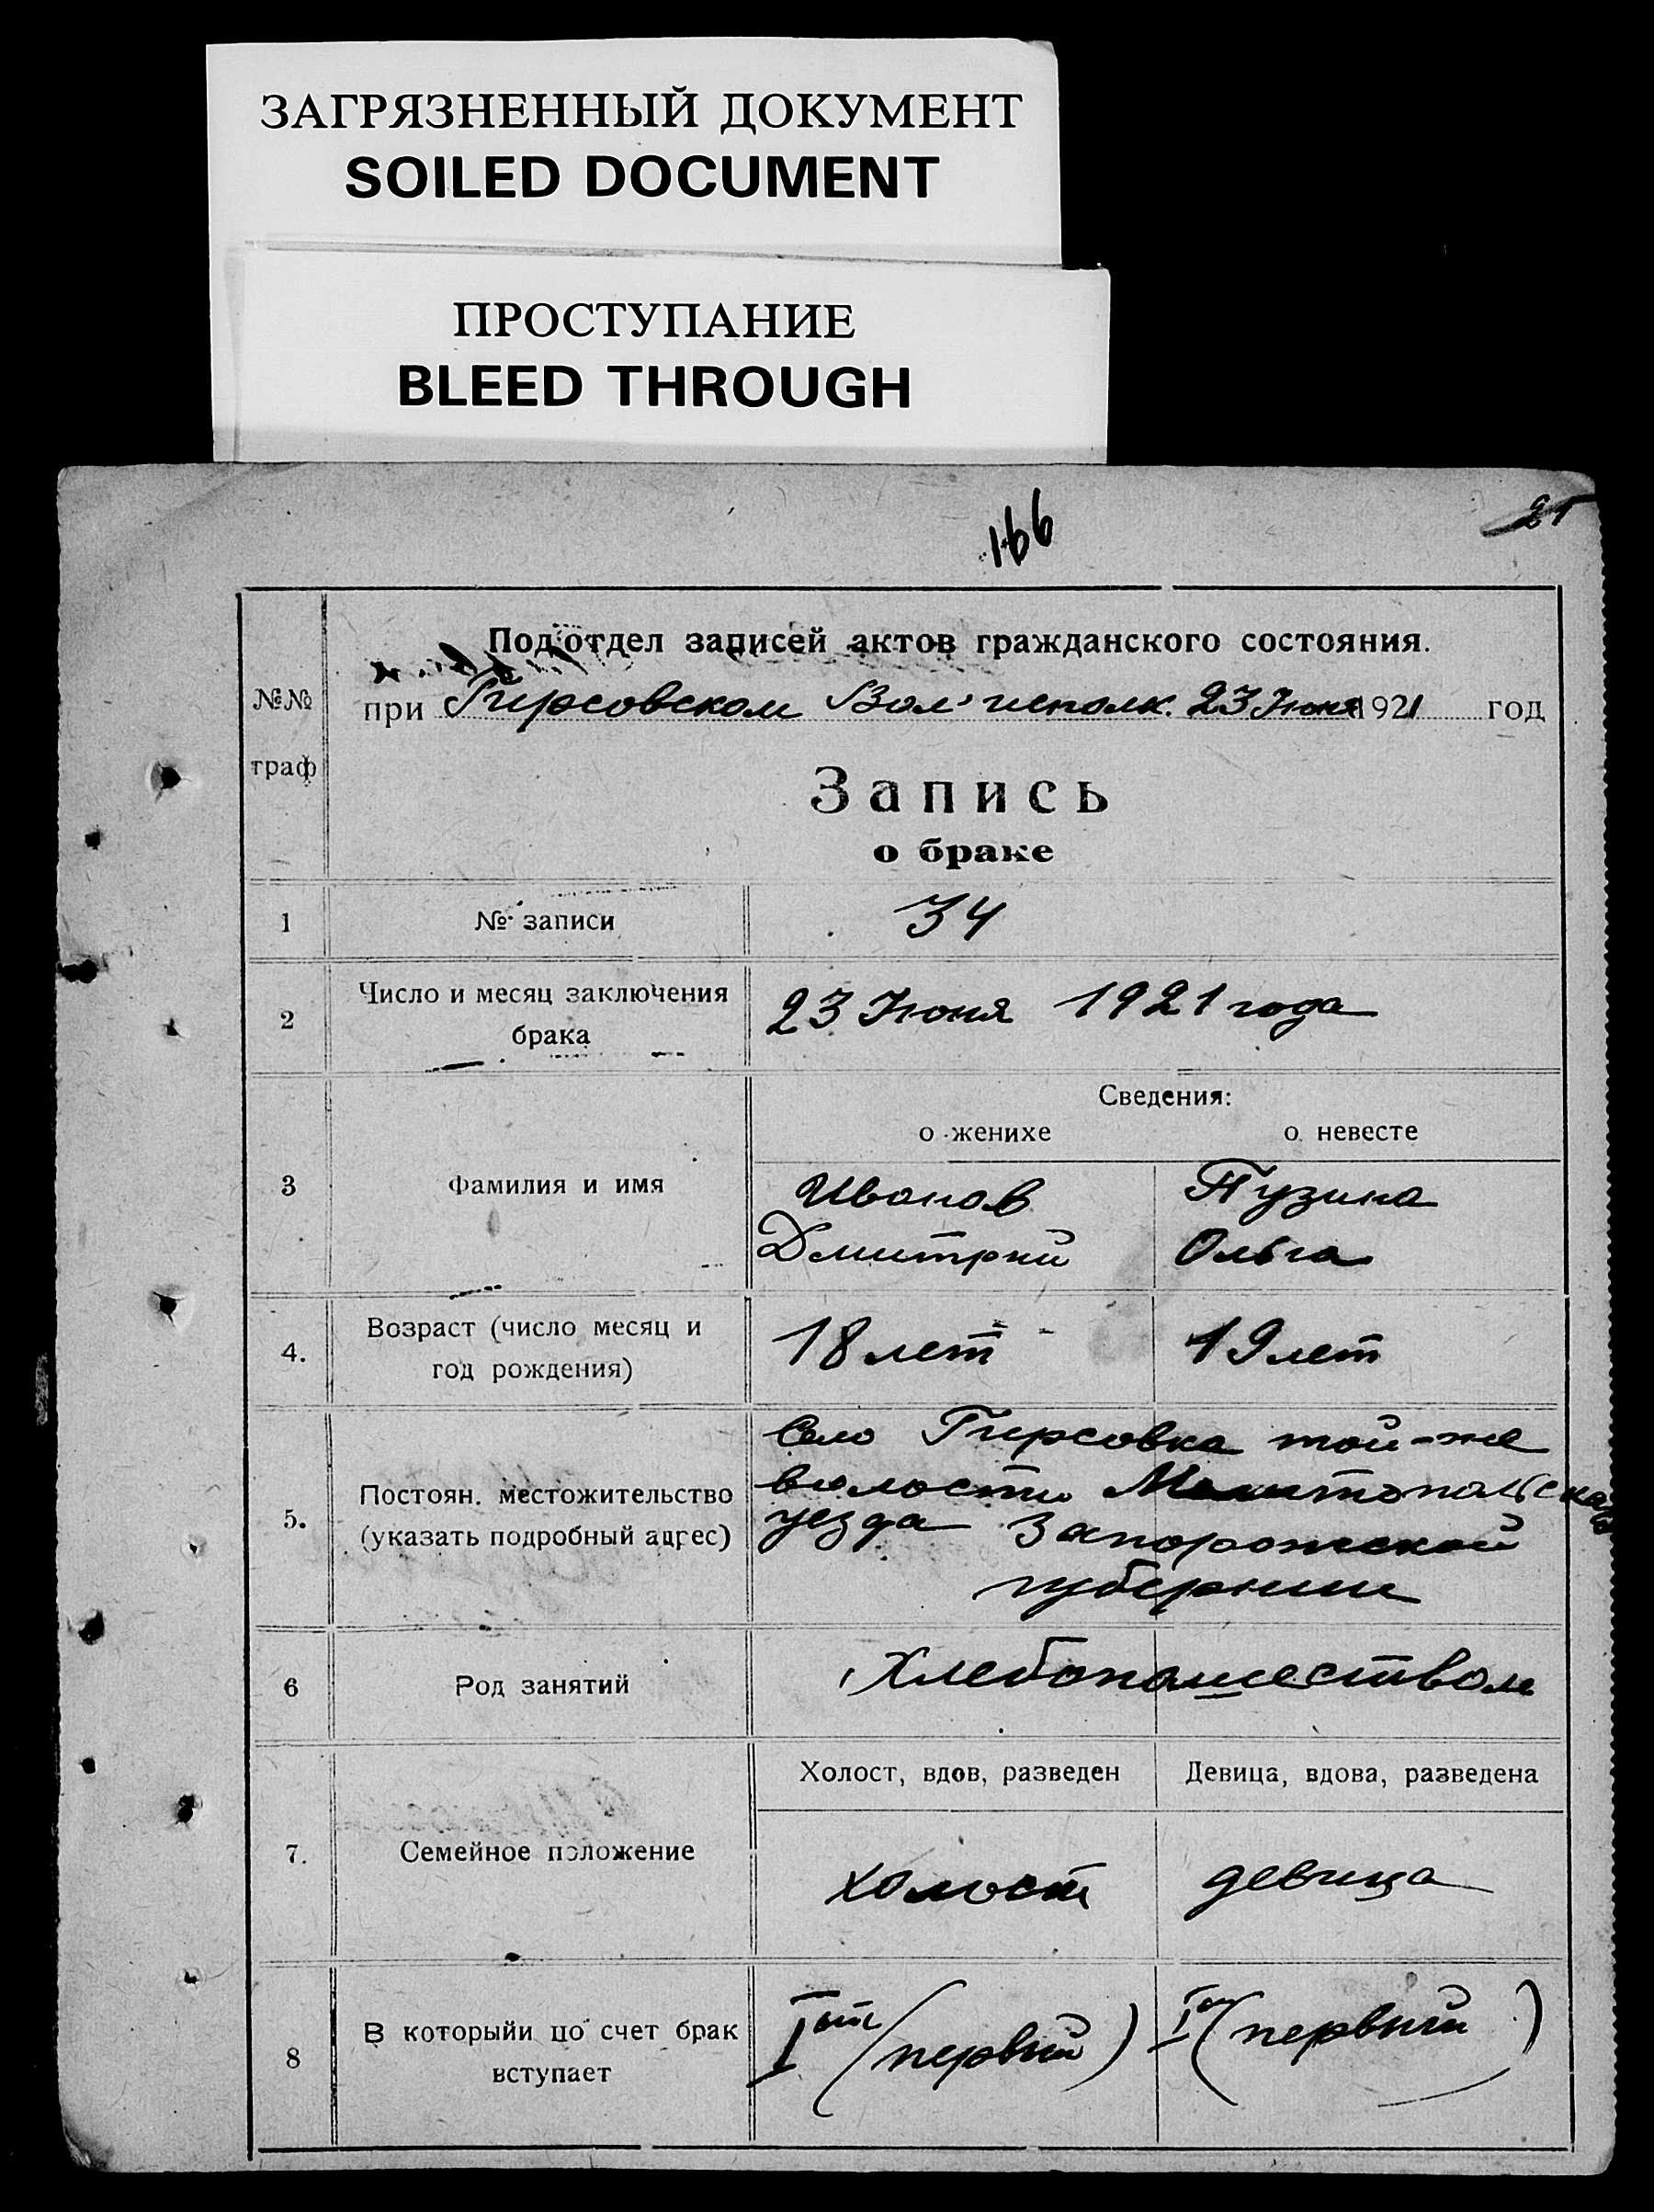 ЗАГРЯЗНЕННЫЙ ДОКУМЕНТ
SOILED DOCUMENT
ПРОСТУПАНИЕ
BLEED THROUGH
166
21
Под'отдел записей актов гражданского состояния.
№№ граф
при Гирсовском Вол' исполк. 23 Июня 1921 год
Запись
о браке
1 № записи 34
2 Число и месяц заключения брака 23 Июня 1921 года
Сведения:
о женихе о невесте
3 Фамилия и имя
Иванов Пузина
Дмитрий Ольга
4. Возраст (число месяц и год рождения) 18 лет 19 лет
5. Постоян. местожительство (указать подробный адрес)
Село Гирсовка той-же
волости Мелитопольскаго
уезда Запорожской
губернии
6 Род занятий Хлебопашеством
Холост, вдов, разведен Девица, вдова, разведена
7. Семейное положение холост девица
8 В которыйи по счет брак вступает Iый (первый) Iы (первый)